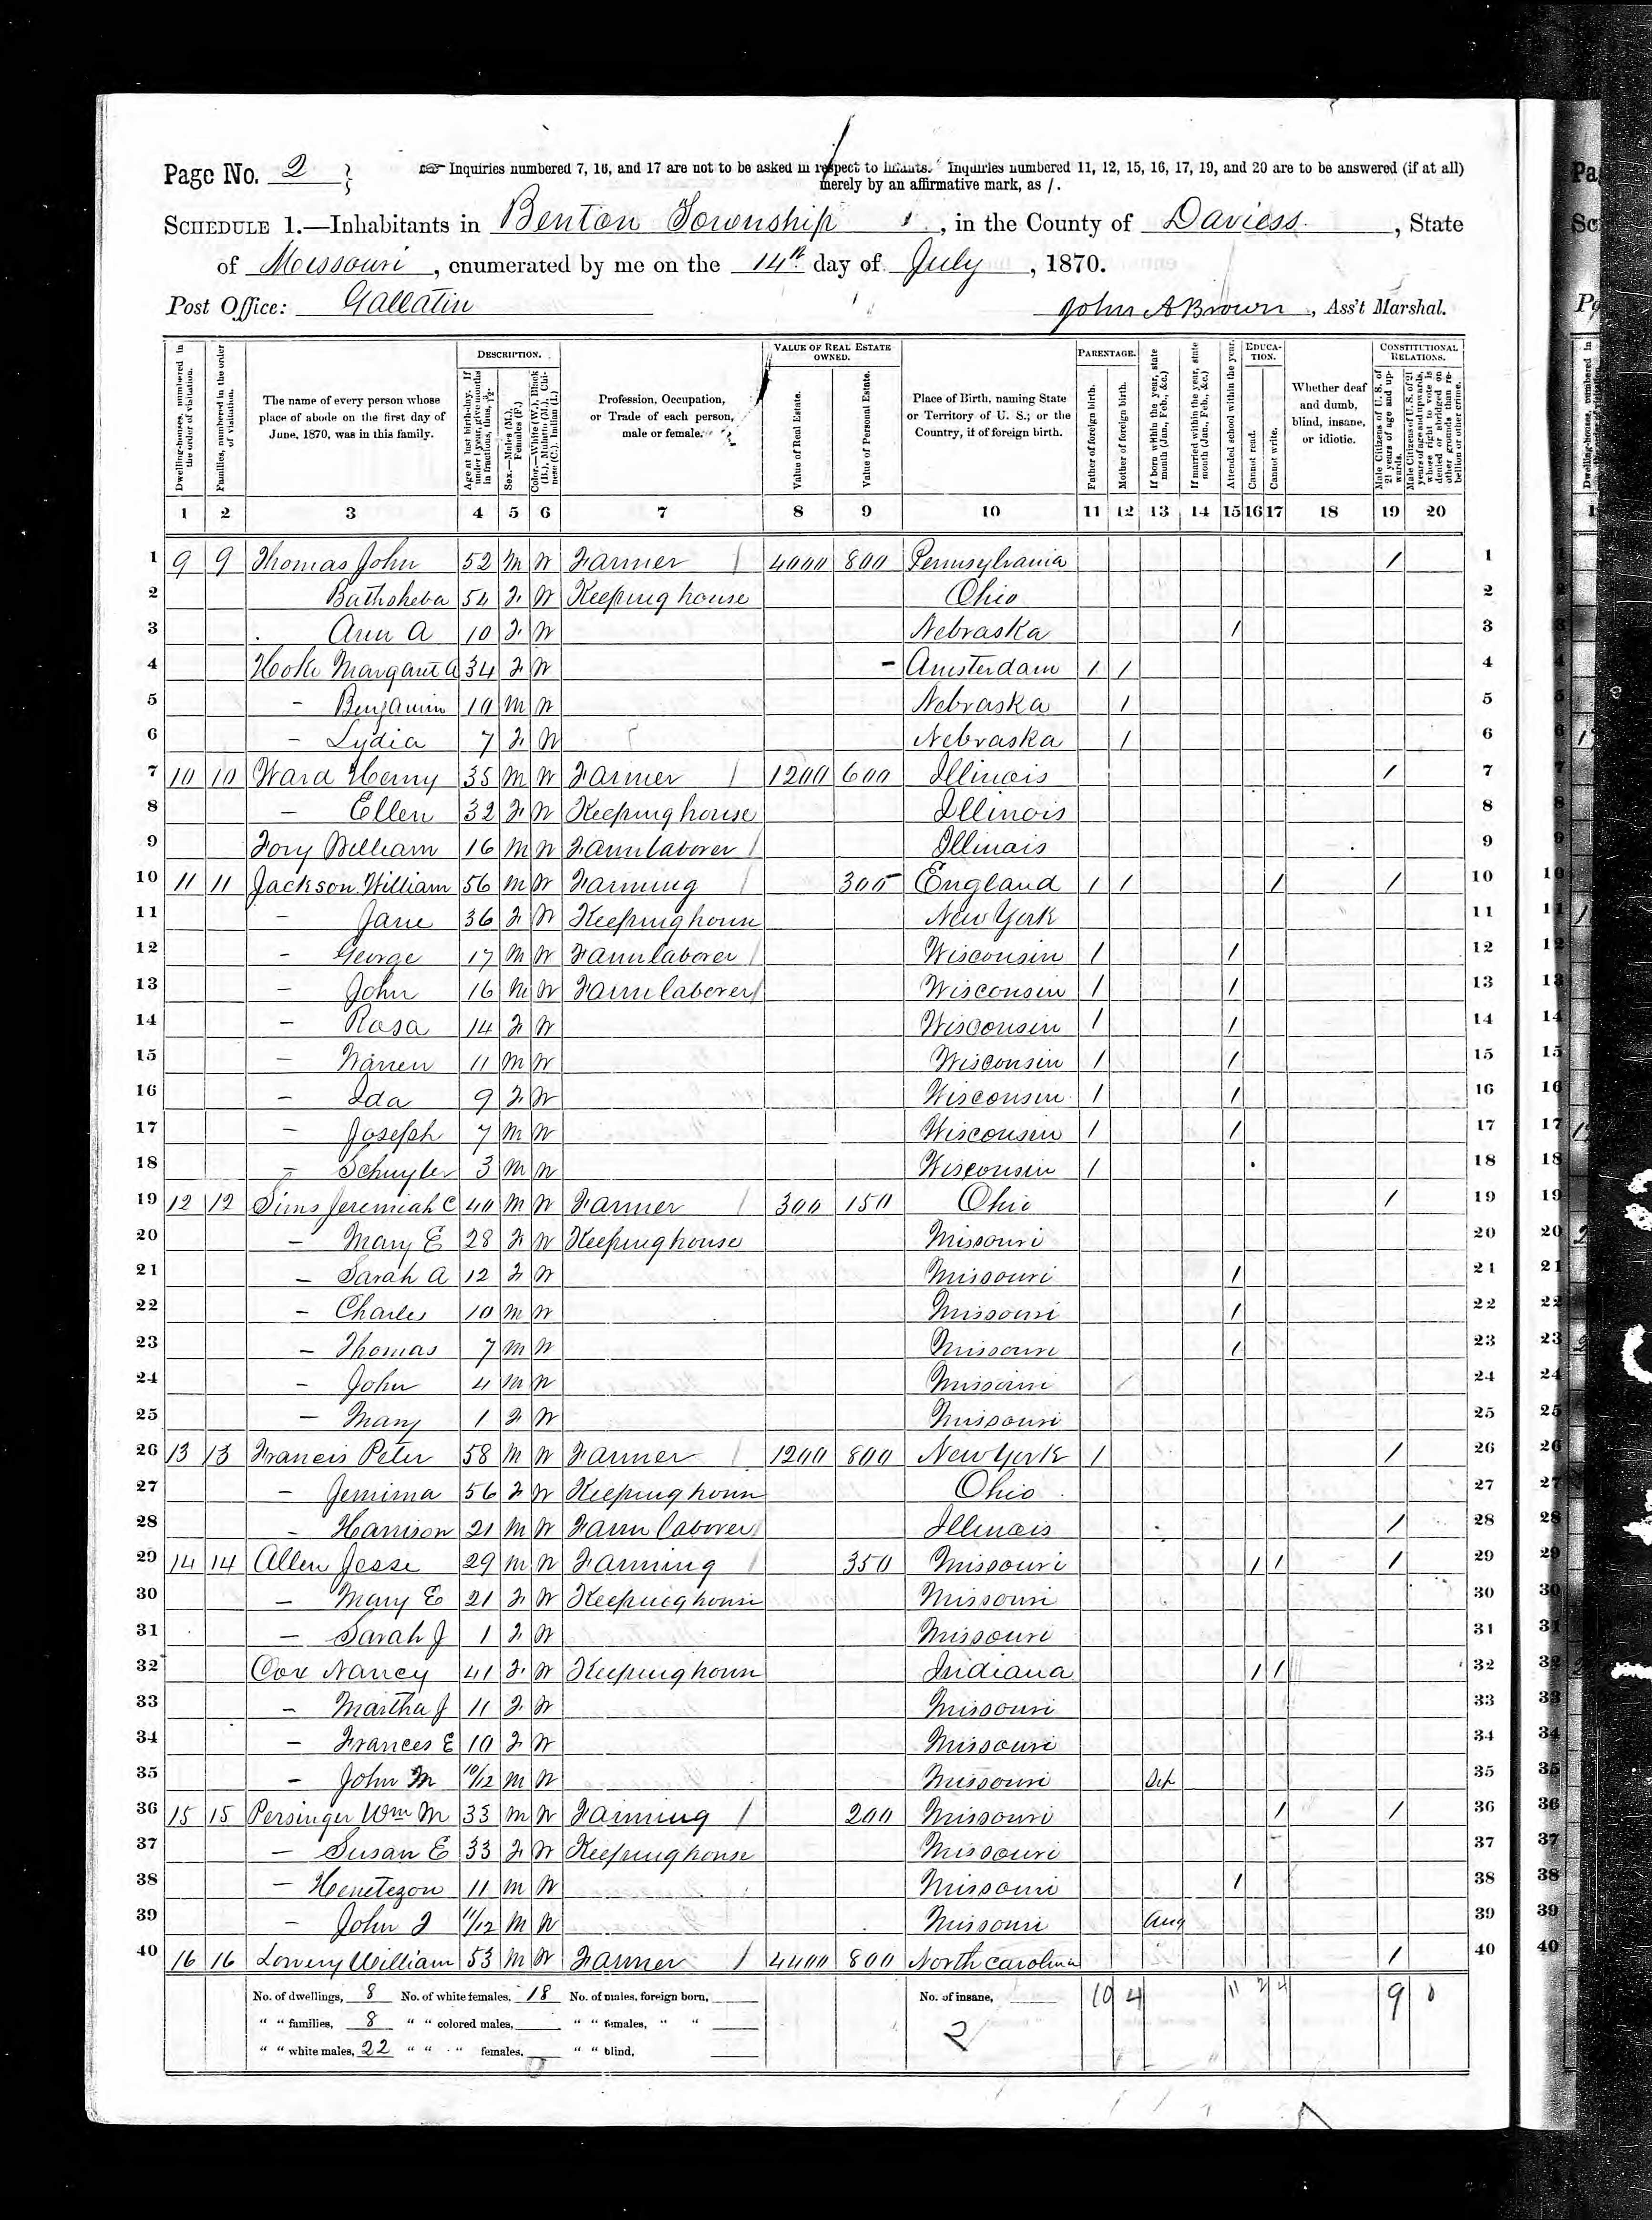 Page No. 2
Inquiries numbered 7, 16, and 17 are not to be asked in respect to infants. Inquiries numbered 11, 12, 15, 16, 17, 19, and 20 are to be answered (if at all)
merely by an affirmative mark, as /.
SCHEDULE 1.—Inhabitants in Benton Township, in the County of Daviess, State
of Missouri, enumerated by me on the 14th day of July, 1870.
Post Office: Gallatin
John A Brown, Ass't Marshal.
Dwelling-houses, numbered in the order of visitation.
Families, numbered in the order of visitation.
The name of every person whose place of abode on the first day of June, 1870, was in this family.
DESCRIPTION.
Age at last birth-day. If under 1 year, give months in fractions, thus, 3/12.
Sex.—Males (M.), Females (F.)
Color.—White (W.), Black (B.), Mulatto (M.), Chinese (C.), Indian (I.)
Profession, Occupation, or Trade of each person, male or female.
VALUE OF REAL ESTATE OWNED.
Value of Real Estate.
Value of Personal Estate.
Place of Birth, naming State or Territory of U. S.; or the Country, if of foreign birth.
PARENTAGE.
Father of foreign birth.
Mother of foreign birth.
If born within the year, state month (Jan., Feb., &c.)
If married within the year, state month (Jan., Feb., &c.)
Attended school within the year.
EDUCATION.
Cannot read.
Cannot write.
Whether deaf and dumb, blind, insane, or idiotic.
CONSTITUTIONAL RELATIONS.
Male Citizens of U. S. of 21 years of age and upwards.
Male Citizens of U. S. of 21 years of age and upwards, whose right to vote is denied or abridged on other grounds than rebellion or other crime.
1 2 3 4 5 6 7 8 9 10 11 12 13 14 15 16 17 18 19 20
1 9 9 Thomas John 52 M W Farmer / 4000 800 Pennsylvania / 1
2 Bathsheba 54 F W Keeping house Ohio 2
3 Ann A 10 F W Nebraska / 3
4 Hoke Margaret A 34 F W – Amsterdam / / 4
5 – Benjamin 10 M W Nebraska / 5
6 – Lydia 7 F W Nebraska / 6
7 10 10 Ward Henry 35 M W Farmer / 1200 600 Illinois / 7
8 – Ellen 32 F W Keeping house Illinois 8
9 Fory William 16 M W Farm laborer / Illinois 9
10 11 11 Jackson William 56 M W Farming / 300 England / / / / 10
11 – Jane 36 F W Keeping house New York 11
12 – George 17 M W Farm laborer / Wisconsin / / 12
13 – John 16 M W Farm laborer / Wisconsin / / 13
14 – Rosa 14 F W Wisconsin / / 14
15 – Warren 11 M W Wisconsin / / 15
16 – Ida 9 F W Wisconsin / / 16
17 – Joseph 7 M W Wisconsin / / 17
18 – Schuyler 3 M W Wisconsin / 18
19 12 12 Sims Jeremiah C 40 M W Farmer / 300 150 Ohio / 19
20 – Mary E 28 F W Keeping house Missouri 20
21 – Sarah A 12 F W Missouri / 21
22 – Charles 10 M W Missouri / 22
23 – Thomas 7 M W Missouri / 23
24 – John 4 M W Missouri 24
25 – Mary 1 F W Missouri 25
26 13 13 Francis Peter 58 M W Farmer / 1200 800 New York / / 26
27 – Jemima 56 F W Keeping house Ohio 27
28 – Harrison 21 M W Farm laborer / Illinois / 28
29 14 14 Allen Jesse 29 M W Farming / 350 Missouri / / / 29
30 – Mary E 21 F W Keeping house Missouri 30
31 – Sarah J 1 F W Missouri 31
32 Cox Nancy 41 F W Keeping house Indiana / / 32
33 – Martha J 11 F W Missouri 33
34 – Frances E 10 F W Missouri 34
35 – John M 10/12 M W Missouri Sep 35
36 15 15 Persinger Wm M 33 M W Farming / 200 Missouri / / 36
37 – Susan E 33 F W Keeping house Missouri 37
38 – Henetezon 11 M W Missouri / 38
39 – John F 11/12 M W Missouri Aug 39
40 16 16 Lowery William 53 M W Farmer / 4400 800 North Carolina / 40
No. of dwellings, 8 No. of white females, 18 No. of males, foreign born, No. of insane, 10 4 11 2 4 9 0
" " families, 8 " " colored males, " " females, " " 2
" " white males, 22 " " " females, " " blind,